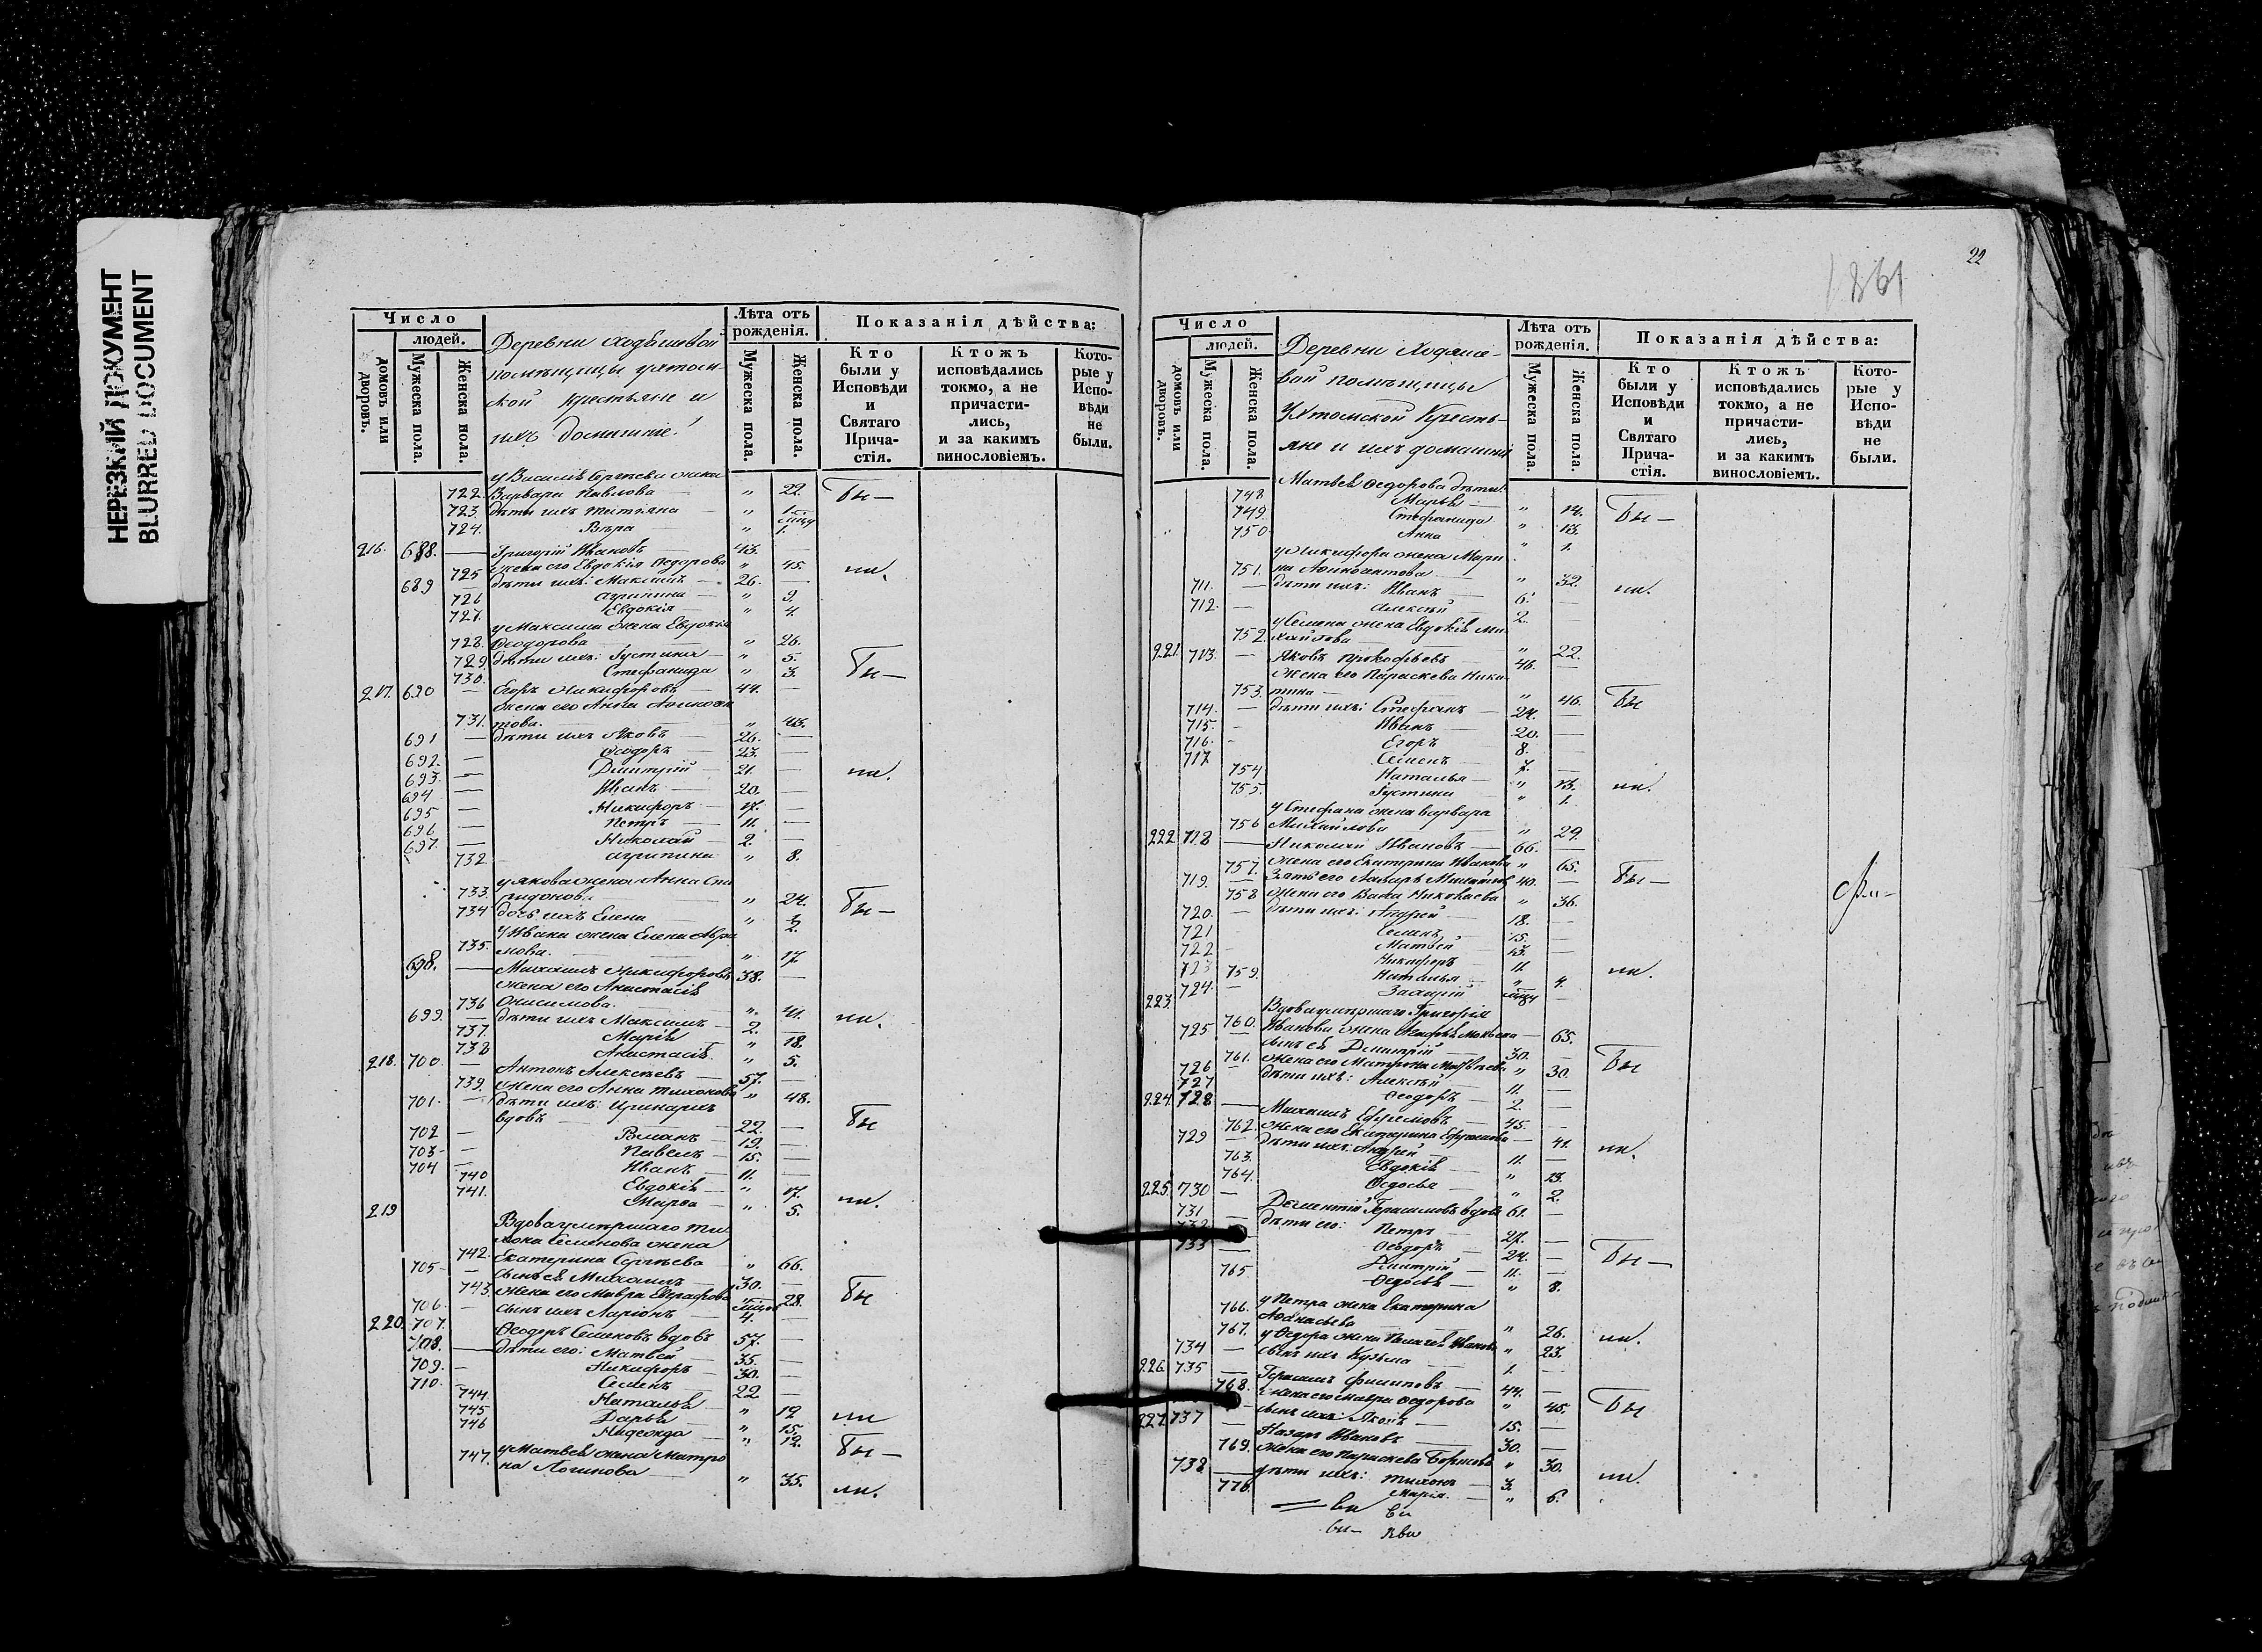 НЕРЕЗКИЙ ДОКУМЕНТ
BLURRED DOCUMENT
Число
людей.
домовъ или дворовъ.
Мужеска пола.
Женска пола.
Деревни Ходяшовой
помѣщицы Ухтом-
ской крестьяне и
ихъ домашніе:
Лѣта отъ рожденія.
Мужеска пола.
Женска пола.
Показанія дѣйства:
Кто были у Исповѣди и Святаго Прича-стія.
Ктожъ исповѣдались токмо, а не причасти-лись, и за какимъ винословіемъ.
Кото-рые у Испо-вѣди не были.
у Василья Сергѣева жена
722. Варвара Павлова — " 22. Бы —
723. дѣти ихъ Татіяна — "
724. Вѣра " 1.
216. 688. — Григорій Ивановъ 43. —
725 жена его Евдокія Ѳедорова " 45.
689 — дѣти ихъ: Максимъ — 26. —
726 Агрипина — " 9.
727. Евдокія — " 4.
у Максима жена Евдокія
728. Ѳеодорова " 26.
729. дѣти ихъ: Іустинья — " 5.
730. Стефанида " 3. Бы —
217. 690 — Егоръ Никифоровъ — 44. —
жена его Анна
731. това. "
691 — дѣти ихъ Яковъ — 26. —
692. — Ѳеодоръ — 23.
693. — Дмитрій — 21. —
694 — Иванъ — 20. —
695 — Никифоръ — 17. —
696 — Петръ — 11. —
697. — Николай — 2. —
732 Агрипина " 8.
у Якова жена Анна Спи
733. ридонова " 24. Бы —
734 дочь ихъ Елена " 2.
у Ивана жена Елена Авра
735. мова. " 17
698. — Михаилъ Никифоровъ 38. —
жена его Анастасія
736 Онисимова. " 41.
699. — дѣти ихъ Максимъ — 2. —
737. Марія " 18.
738 Анастасія. " 5.
218. 700. — Антонъ Алексѣевъ — 57. —
739. жена его Анна Тихонова " 48.
701. — дѣти ихъ:
вдовъ 22. — Бы
702 — Романъ — 19. —
703 — Павелъ — 15. —
704 — Иванъ — 11. —
740 Евдокія — " 17.
741. Марѳа — " 5.
219 Вдова умершаго Ти
хона Семенова жена
742. Екатерина Сергѣева " 66.
705 — сынъ ея Михаилъ — 30. —
743. жена его Мавра Евграфова 28. Бы
706. — сынъ ихъ Ларіонъ —
220. 707. Ѳеодоръ Семеновъ вдовъ 57. —
708. — дѣти его: Матвей 35. —
709. — Никифоръ — 30. —
710. — Семенъ — 22 —
744. Наталья — " 19
745 Дарья — " 15.
746 Надежда — " 12. Бы —
у Матвея жена Матро
747. на Логинова — " 35.
22
1861
Число
людей.
домовъ или дворовъ.
Мужеска пола.
Женска пола.
Деревни Ходяшо-
вой помѣщицы
Ухтомской Кресть-
яне и ихъ домашніе
Лѣта отъ рожденія.
Мужеска пола.
Женска пола.
Показанія дѣйства:
Кто были у Исповѣди и Святаго Прича-стія.
Ктожъ исповѣдались токмо, а не причасти-лись, и за какимъ винословіемъ.
Кото-рые у Испо-вѣди не были.
Матвея Ѳедорова дѣти:
748 Марья — " 14. Бы —
749. Стефанида " 13.
750 Анна " 1.
у Никифора жена Мари
751. на " 32.
711. — дѣти ихъ: Иванъ — 6. —
712. — Алексѣй — 2. —
у Семена жена Евдокія Ми
752. хайлова " 22.
221. 713. — Яковъ Прокофьевъ — 46. —
жена его Параскева Ники
753. тина — " 46. Бы
714. — дѣти ихъ: Стефанъ — 24. —
715. — Иванъ 20. —
716. — Егоръ 8. —
717 Семенъ — 7. —
754 Наталья — " 13.
755. Іустина — " 1.
у Стефана жена Варвара
756 Михайлова " 29.
222 718 — Николай Ивановъ — 66. —
757. жена его Екатерина Иванова " 65. Бы —
719. — Зять его Лазарь 40. —
758 жена его Николаева " 36.
720. — дѣти ихъ: Андрей — 18. —
721 Семенъ 15. —
722 — Матвей 13. —
723 Никифоръ — 11
759. Наталья — " 4.
724. — Захарій —
223. Вдова умершаго Григорія
760. Иванова жена 65.
725 — сынъ ея Дмитрій — 30. — Бы
761. жена его Матрона Матѳеева " 30.
726 — дѣти ихъ: Алексѣй — 11. —
727 Ѳеодоръ — 2. —
224. 728 — Михаилъ Ефремовъ — 45. —
762. жена его Екатерина 41.
729 — дѣти ихъ: Андрей — 11. —
763. Евдокія — " 13.
764. Ѳедосья — " 2.
225. 730 — Дементій Герасимовъ вдовъ 61. —
731 — дѣти его: Петръ — 27. —
732 Ѳеодоръ — 24. — Бы —
733 — Дмитрій — 11. —
765 Ѳедосья " 8.
у Петра жена Екатерина
766. Аѳанасьева " 26.
767. у Ѳедора жена Пелагея Иванова " 23.
734 — сынъ ихъ Кузьма — 1. —
226. 735 — Герасимъ Филиповъ — 44. —
768. жена его Мавра Ѳедорова " 45. Бы
— сынъ ихъ: Яковъ — 15. —
227. 737 — Назаръ Ивановъ 30. —
769. жена его Параскева Борисова " 30.
738. — дѣти ихъ: Тихонъ — 3. —
770. Марія. — " 6.